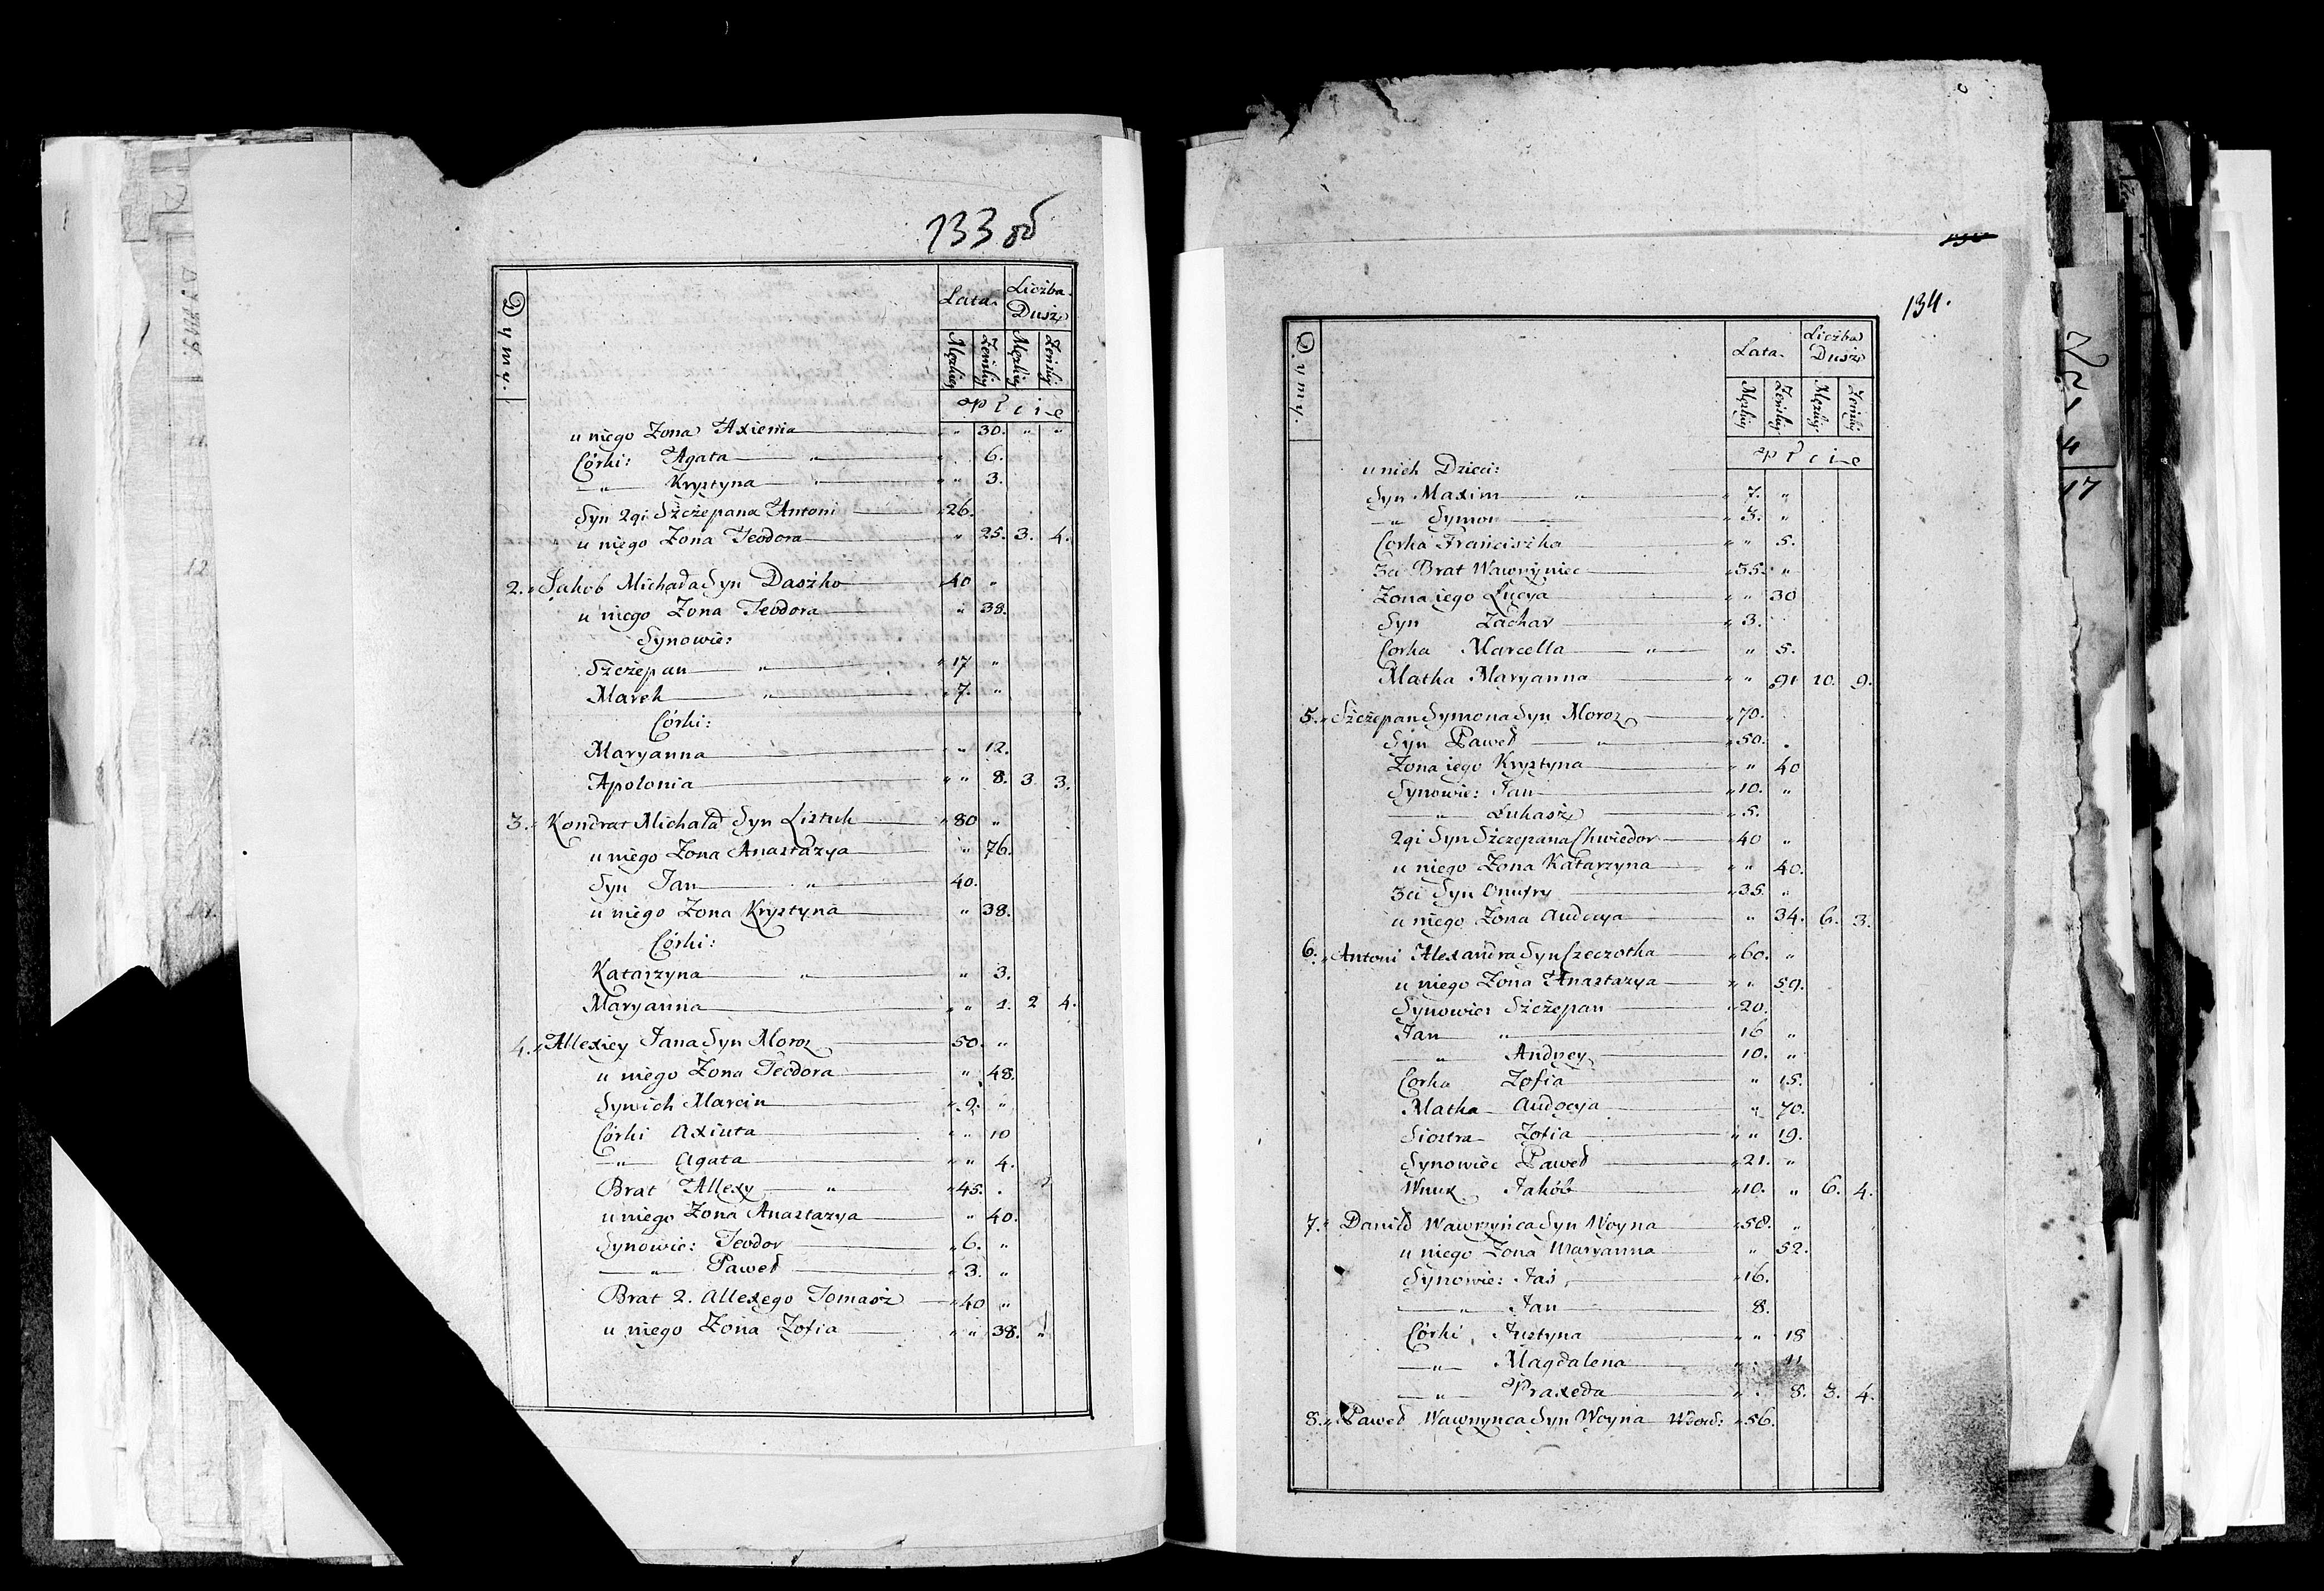 133 об
Dymy.
Lata. Liczba Dusz
Męzkiey Żeńskiey Męzkiey Żeńskiey
Płci e
u niego Żona Axienia " 30. " "
Córki: Agata " " 6.
" Krystyna " " 3.
Syn 2gi Szczepana Antoni " 26.
u niego Żona Teodora " 25. 3. 4.
2. " Jakob Michała Syn Daszko " 40 "
u niego Żona Teodora " 38.
Synowie:
Szczepan " " 17 "
Marek " " 7. "
Córki:
Maryanna " 12.
Apolonia " " 8. 3 3.
3. " Kondrat Michała Syn Listuk " 80 "
u niego Żona Anastazya " 76.
Syn Jan " 40.
u niego Żona Krystyna " 38.
Córki:
Katarzyna " " 3.
Maryanna " " 1. 2 4.
4. " Allexiey Jana Syn Moroz 50. "
u niego Żona Teodora " 48.
Synich Marcin " 9. "
Córki Axiuta " " 10
" Agata " " 4.
Brat Allexy " " 45. .
u niego Żona Anastazya " 40.
Synowie: Teodor " 6. "
" Paweł " 3. "
Brat 2. Allexego Tomasz " 40 "
u niego Żona Zofia " " 38. "
134.
Dymy.
Lata. Liczba Dusz
Męzkiey Żeńskiey Męzkiey Żeńskiey
Płci e
u nich Dzieci:
Syn Maxim " " 7. "
" Symon " 3. "
Corka Franciszka " " 5.
3ci Brat Wawrzyniec " 35. "
Żona iego Łucya " " 30
Syn Zachar " 3.
Corka Marcella " " 5.
Matka Maryanna " " 91 10. 9.
5. " Szczepan Symona Syn Moroz " 70.
Syn Paweł " " 50. "
Żona iego Krystyna " " 40
Synowie: Jan " 10. "
" Łukasz " 5.
2gi Syn Szczepana Chwiedor " 40 "
u niego Żona Katarzyna " " 40.
3ci Syn Onufry " 35. "
u niego Żona Audocya " 34. 6. 3.
6. " Antoni Alexandra Syn Czeczotka " 60. "
u niego Żona Anastazya " " 59.
Synowie: Szczepan " 20.
Jan " 16 "
" Andrey 10. "
Corka Zofia " 15.
Matka Audocya " 70.
Siostra Zofia " " 19.
Synowiec Paweł " 21. "
Wnuk Jakób " 10. " 6. 4.
7. " Daniło Wawrzyńca Syn Woyna " 58. "
u niego Żona Maryanna " 52.
Synowie: Jaś " 16.
" Jan 8.
Córki Justyna " " 18
" Magdalena " . 11
" Praxeda " . 8. 3. 4.
8. " Paweł Wawrzyńca Syn Woyna Wdow: " 56.